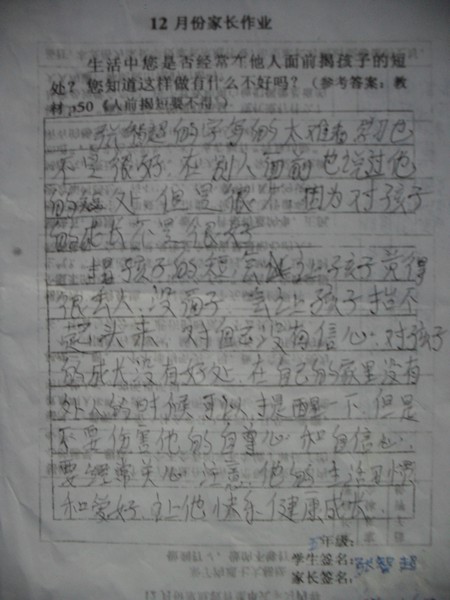 12月份家长作业
生活中您是否经常在他人面前揭孩子的短
处？您知道这样做有什么不好吗？（参考答案：教
材p50《人前揭短要不得》）
张智超的字写的太难看 学习也
不是很好. 在别人面前也说过他
的短处 但是很 因为对孩子
的成长不是很好
揭孩子的短会让孩子觉得
很丢人,没面子 会让孩子抬不
起头来. 对 没有信心. 对孩子
的成长没有好处. 在自己的家里没有
外人的时候可以提醒一下. 但是
不要伤害他的自尊心 和自信心.
要经常关心 注意 他的生活习惯
和爱好. 让他快乐健康成长.
年级：
学生签名: 张智超
家长签名: